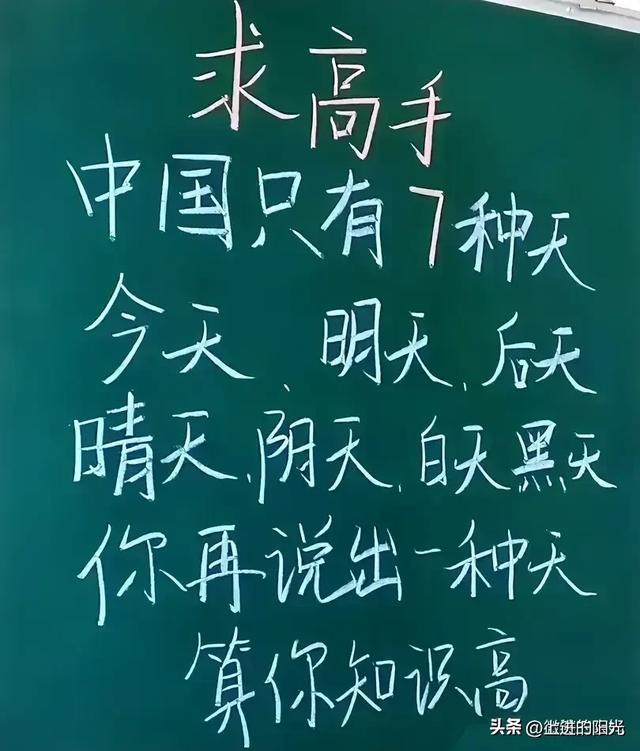 求高手
中国只有7种天
今天、明天、后天
晴天、阴天、白天黑天
你再说出一种天
算你知识高
头条 @